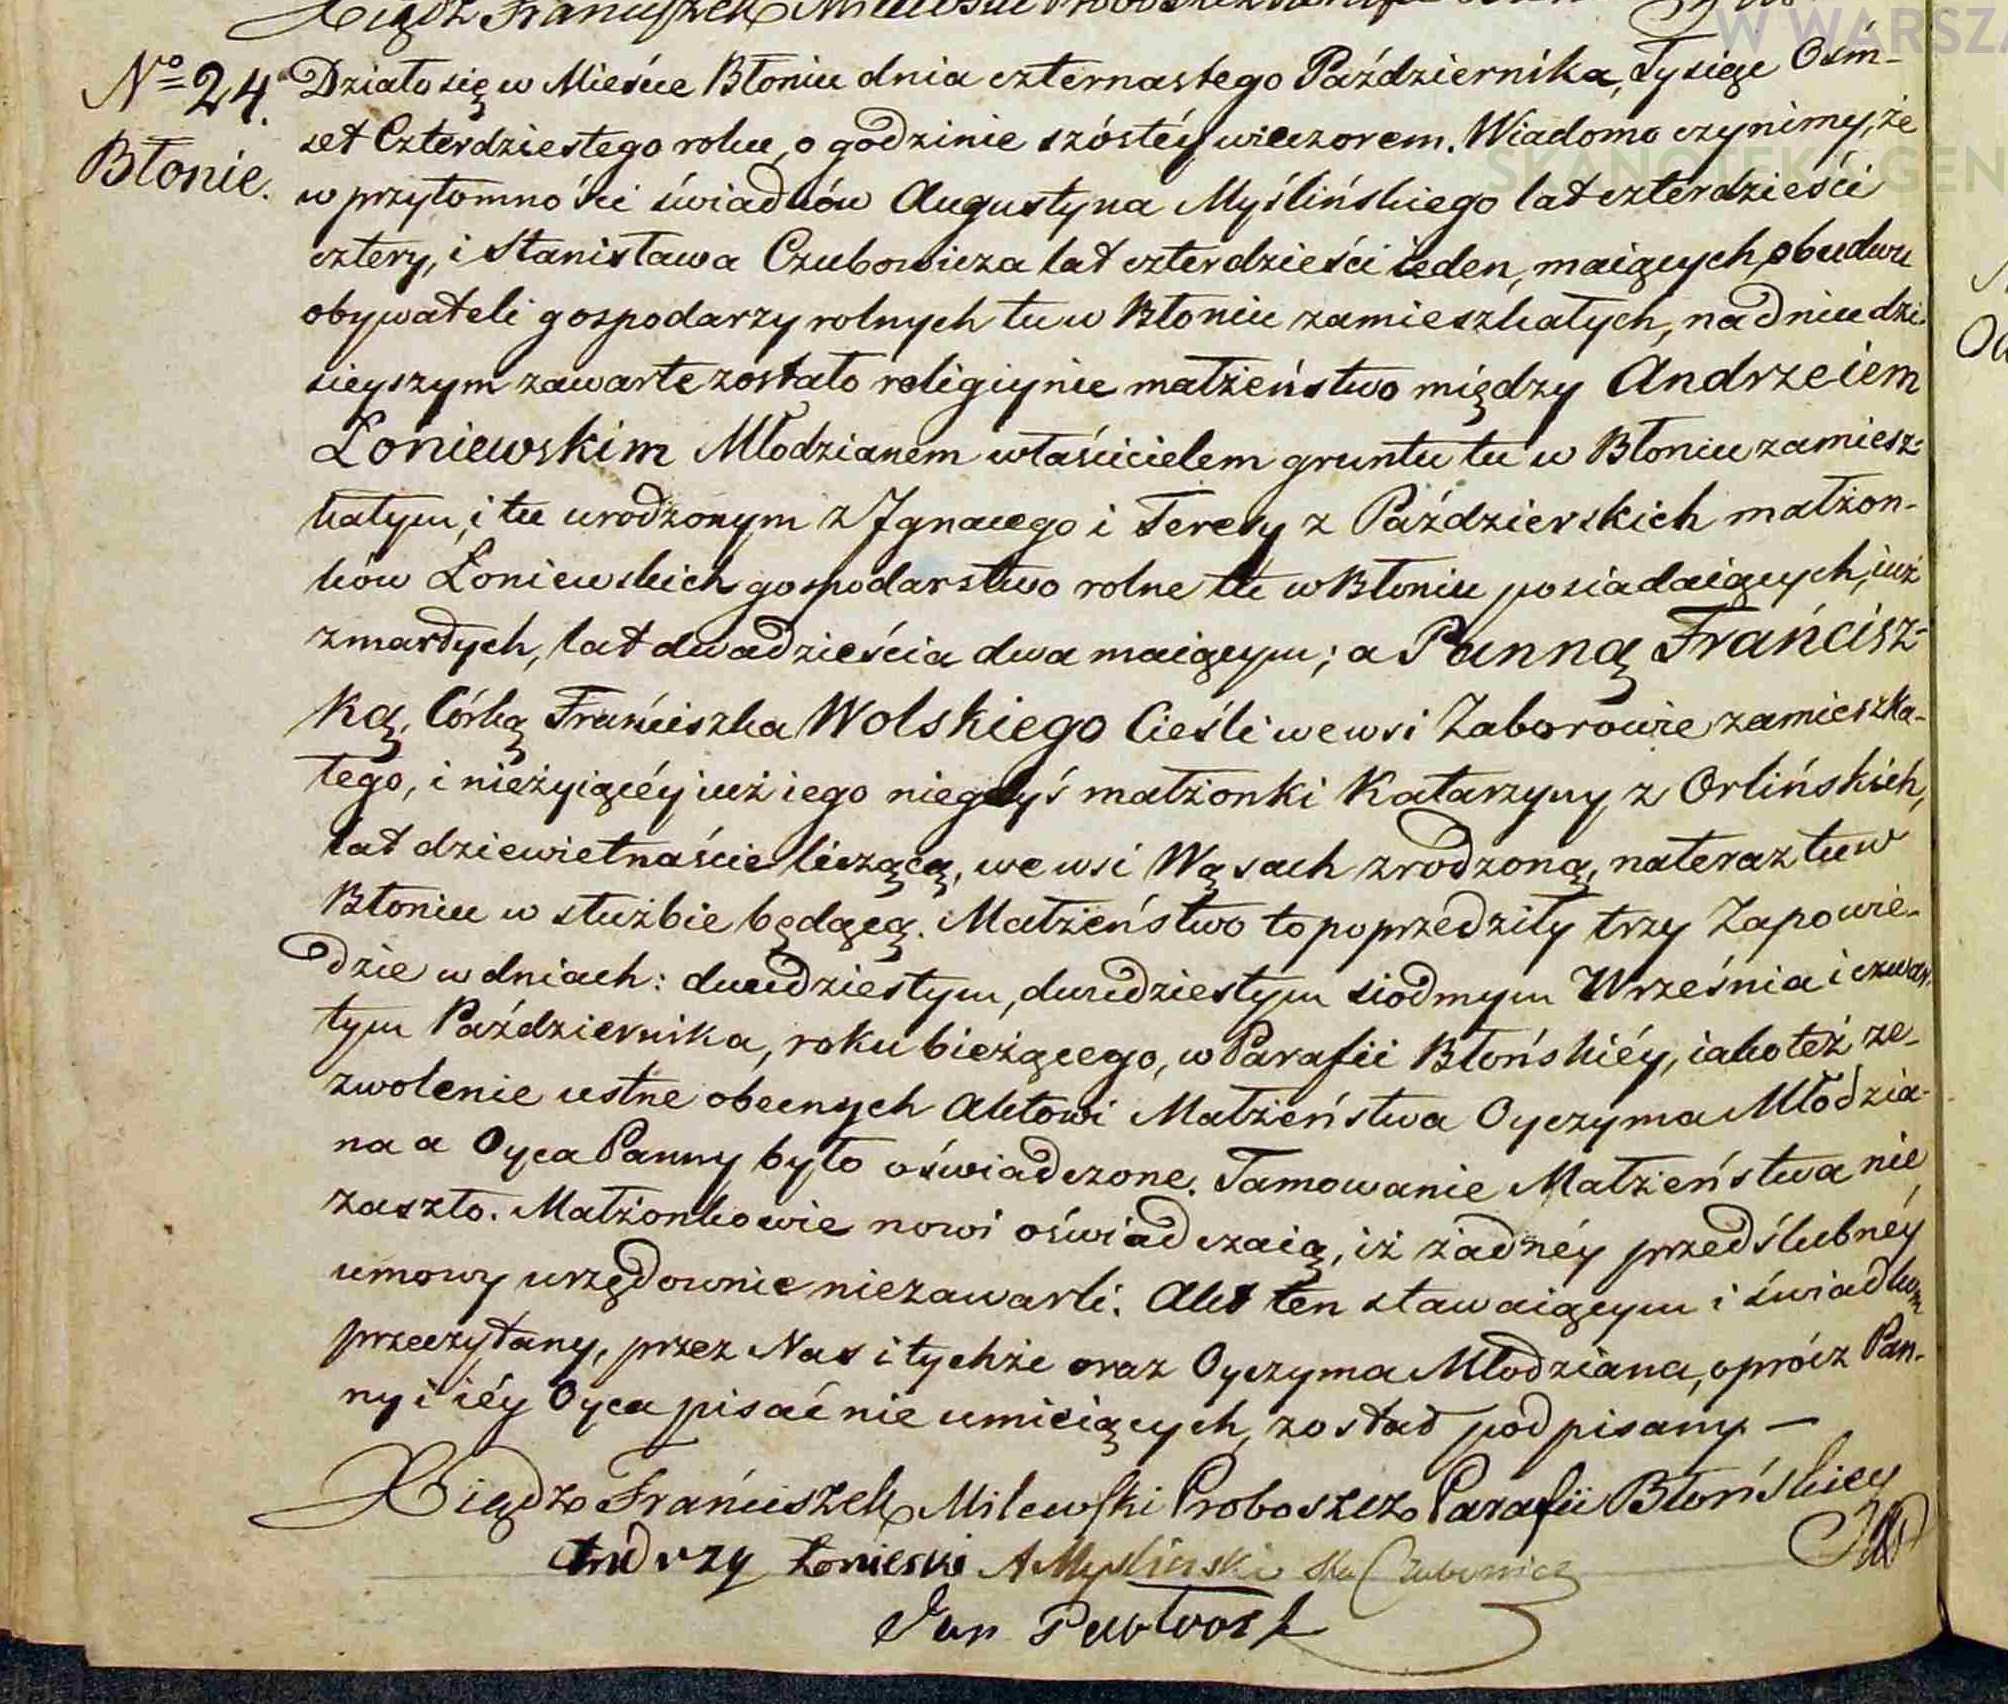 Xiądz Franciszek Milewski Proboszcz
W WARSZA
SKANOTEKA GEN
No 24. Działo się w Mieście Błoniu dnia czternastego Października, Tysiąc Ośm-
Błonie. set Czterdziestego roku, o godzinie szóstéy wieczorem. Wiadomo czynimy, że
w przytomności świadków Augustyna Myślińskiego lat czterdzieści
cztery, i Stanisława Czubowicza lat czterdzieści ieden, maiących, obudwu
obywateli gospodarzy rolnych tu w Błoniu zamieszkałych, na dniu dzi-
sieyszym zawarte zostało religiynie małżeństwo między Andrzeiem
Łoniewskim Młodzianem właścicielem gruntu tu w Błoniu zamiesz-
kałym, i tu urodzonym z Ignacego i Teresy z Paździerskich małżon-
ków Łoniewskich gospodarstwo rolne tu w Błoniu posiadaiących, iuż
zmarłych, lat dwadzieścia dwa maiącym; a Panną Frańcisz-
ką, Córką Frańciszka Wolskiego Cieśli we wsi Zaborowie zamieszka-
łego, i nieżyiącéy iuż iego niegdyś małżonki Katarzyny z Orlińskich,
lat dziewietnaście liczącą, we wsi Wąsach zrodzoną, na teraz tu w
Błoniu w służbie będącą. Małżeństwo to poprzedziły trzy Zapowie-
dzie w dniach: dwudziestym, dwudziestym siodmym Września i czwar-
tym Października, roku bieżącego, w Parafii Błońskiéy, iako też ze-
zwolenie ustne obecnych Aktowi Małżeństwa Oyczyma Młodzia-
na a Oyca Panny było oświadczone. Tamowanie Małżeństwa nie
zaszło. Małżonkowie nowi oświadczaią, iż żadnéy przedślubnéy
umowy urzędownie niezawarli. Akt ten stawaiącym i świadkom
przeczytany, przez Nas i tychże oraz Oyczyma Młodziana, oprócz Pan-
ny i iéy Oyca pisać nie umieiących, został podpisany. —
Xiądz Frańciszek Milewski Proboszcz Parafii Błońskiey
Andrzy Łonieski A Mysliński Sta Czubowicz
Jan Pawłosk